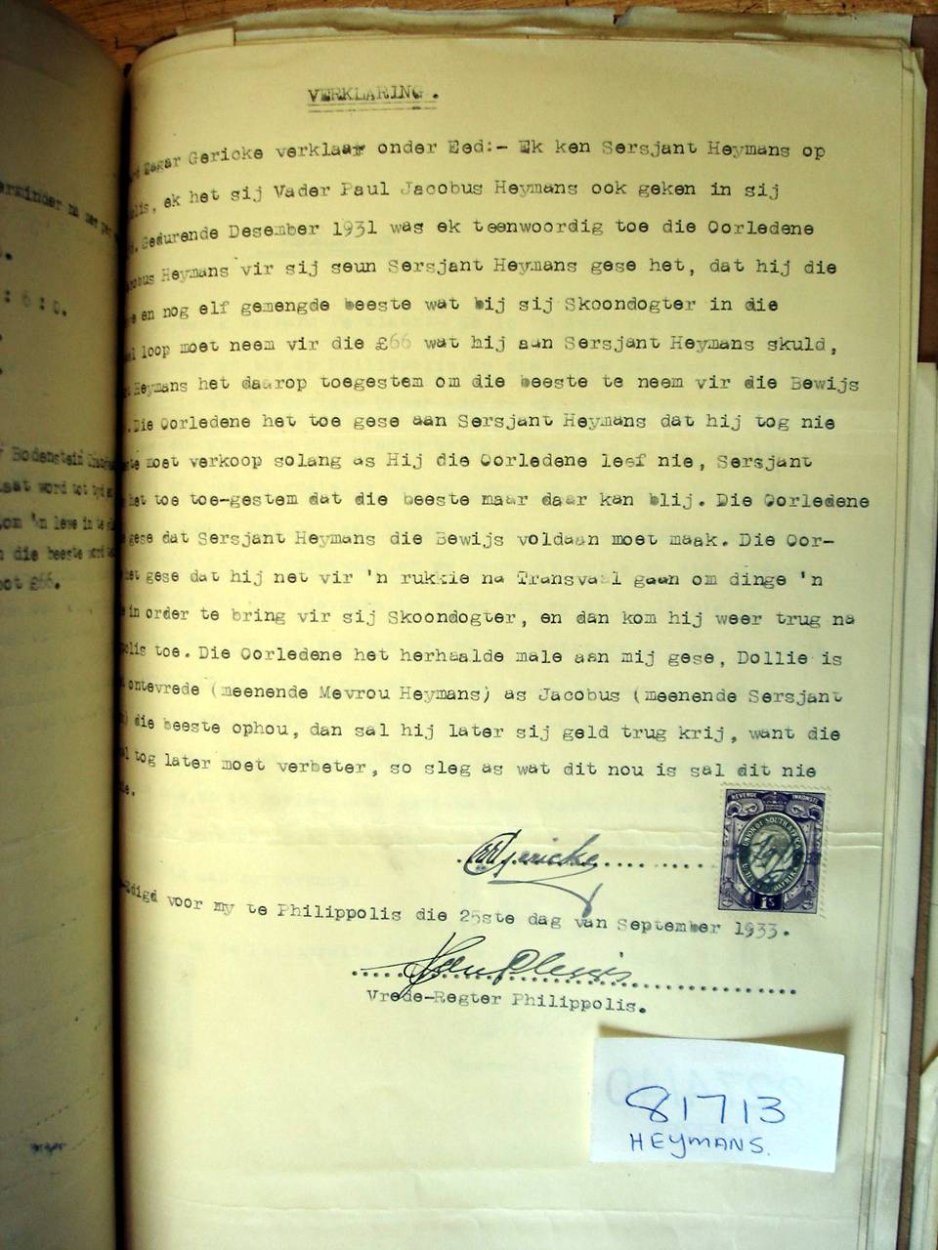 VERKLARING.
Gericke verklaar onder Eed:- Ek ken Sersjant Heymans op
ek het sij Vader Paul Jacobus Heymans ook geken in sij
Gedurende Desember 1931 was ek teenwoordig toe die Oorledene
Heymans vir sij seun Sersjant Heymans gese het, dat hij die
en nog elf gemengde beeste wat bij sij Skoondogter in die
loop moet neem vir die £66 wat hij aan Sersjant Heymans skuld,
Heymans het daarop toegestem om die beeste te neem vir die Bewijs
.Die Oorledene het toe gese aan Sersjant Heymans dat hij tog nie
moet verkoop solang as Hij die Oorledene leef nie, Sersjant
het toe toe-gestem dat die beeste maar daar kan blij. Die Oorledene
gese dat Sersjant Heymans die Bewijs voldaan moet maak. Die Oor-
gese dat hij net vir 'n rukkie na Transvaal gaan om dinge 'n
in order te bring vir sij Skoondogter, en dan kom hij weer trug na
toe. Die Oorledene het herhaalde male aan mij gese, Dollie is
ontevrede (meenende Mevrou Heymans) as Jacobus (meenende Sersjant
die beeste ophou, dan sal hij later sij geld trug krij, want die
tog later moet verbeter, so sleg as wat dit nou is sal dit nie
Gericke
REVENUE INKOMSTE
UNION OF SOUTH AFRICA
1s
voor my te Philippolis die 25ste dag van September 1933.
Vrede-Regter Philippolis.
81713
HEYMANS.